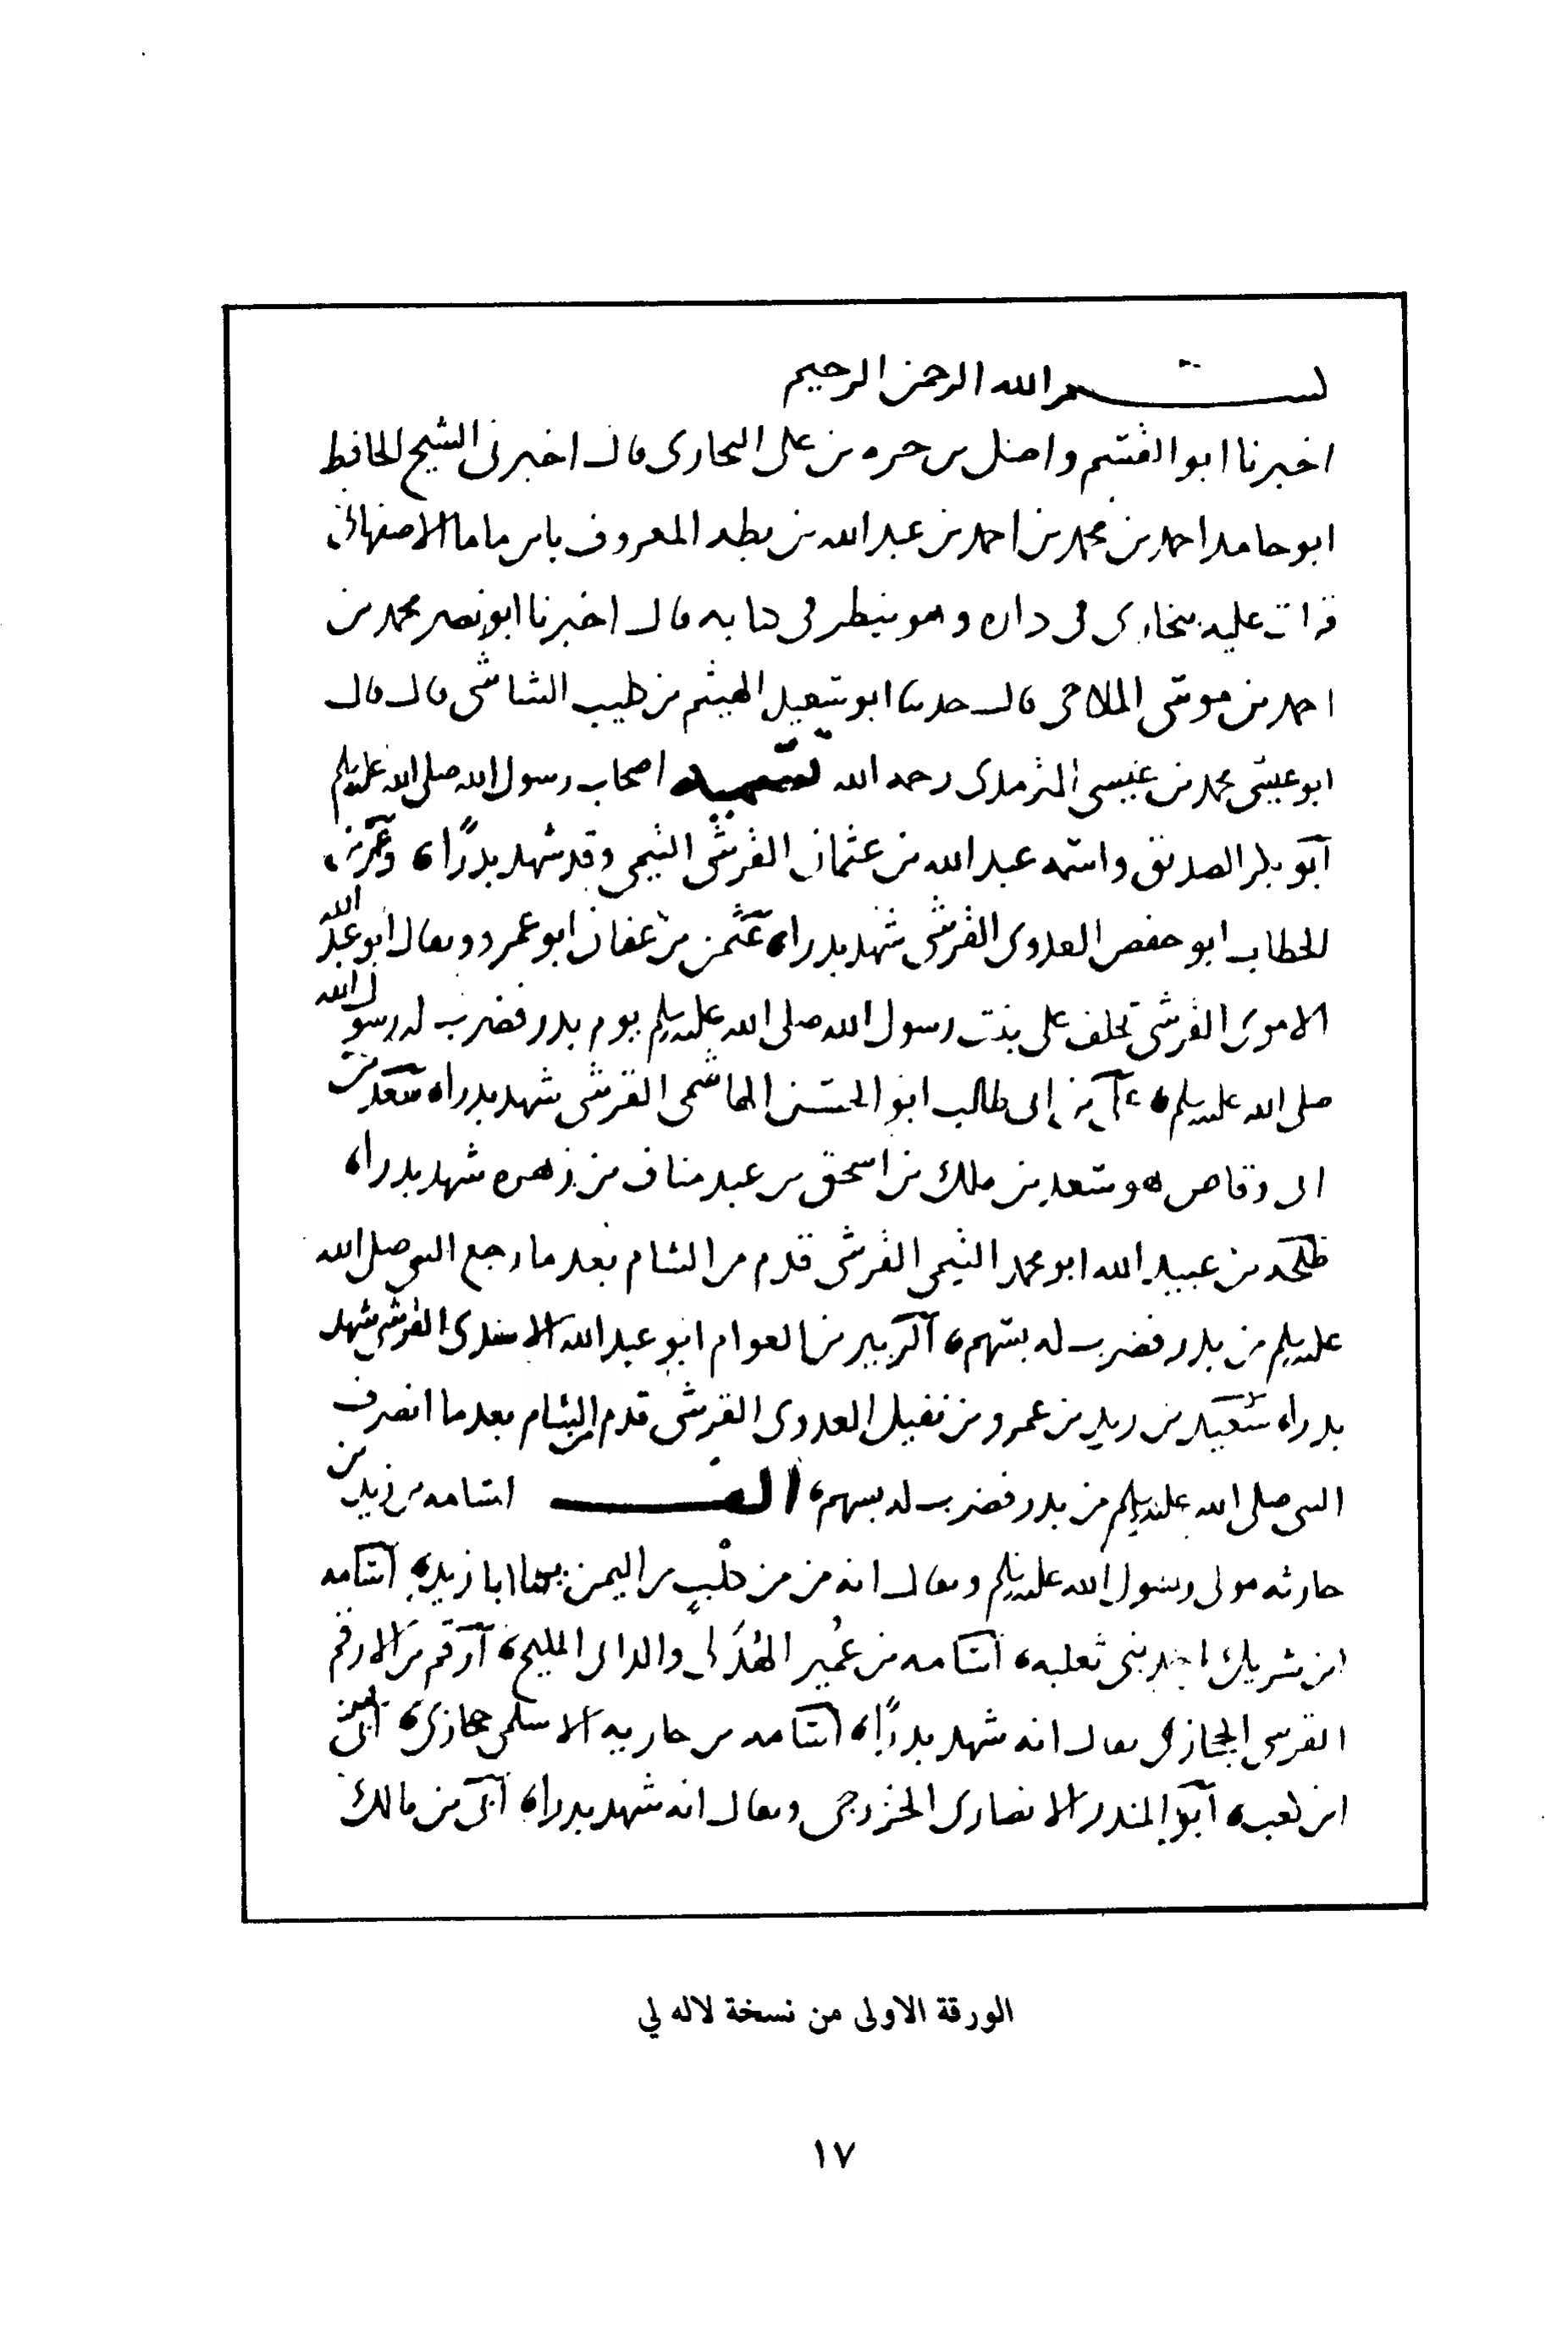 بسم الله الرحمن الرحيم
اخبرنا ابو القسم واصل بن حمزه بن على البخارى قال اخبرنى الشيخ الحافظ
ابو حامد احمد بن محمد بن احمد بن عبد الله بن المعروف بابن ماما الاصفهانى
قرات عليه ببخارى فى داره وهو ينظر فى كتابه قال اخبرنا ابو نصر محمد بن
احمد بن موسى الملاحمى قال حدثنا ابو سعيد الهيثم بن كليب الشاشى قال قال
ابو عيسى محمد بن عيسى الترمذى رحمه الله تسميه اصحاب رسول الله صلى الله عليه وسلم
ابو بكر الصديق واسمه عبد الله بن عثمان القرشى التيمى وقد شهد بدرًا ه وعمر بن
الخطاب ابو حفص العدوى القرشى شهد بدرا ه عثمن بن عفان ابو عمرو ويقال ابو عبد الله
الاموى القرشى تخلف على بنت رسول الله صلى الله عليه وسلم يوم بدر فضرب له رسول الله
صلى الله عليه وسلم ه على بن ابى طالب ابو الحسن الهاشمى القرشى شهد بدرا ه سعد بن
ابى وقاص هو سعد بن ملك بن اسحق بن عبد مناف بن زهره شهد بدرا ه
طلحه بن عبيد الله ابو محمد التيمى القرشى قدم من الشام بعد ما رجع النبى صلى الله
عليه وسلم من بدر فضرب له بسهم ه الزبير بن العوام ابو عبد الله الاسدى القرشى شهد
بدرا ه سعيد بن زيد بن عمرو بن نفيل العدوى القرشى قدم من الشام بعد ما انصرف
النبى صلى الله عليه وسلم من بدر فضرب له بسهم ه الف اسامه بن زيد بن
حارثه مولى رسول الله عليه وسلم ويقال انه من من كلب من اليمن ابا زيد ه اسامه
ابن شريك احد بنى ثعلبه ه اسامه بن عمير الهذلى والد ابى المليح ه ارقم بن الارقم
القرشى الحجازى يقال انه شهد بدرًا ه اسامه بن حاريه الاسلمى حجازى ه ابى
ابن كعب ه ابو المنذر الانصارى الخزرجى ويقال انه شهد بدرا ه ابى بن مالك
الورقة الاولى من نسخة لاله لي
١٧